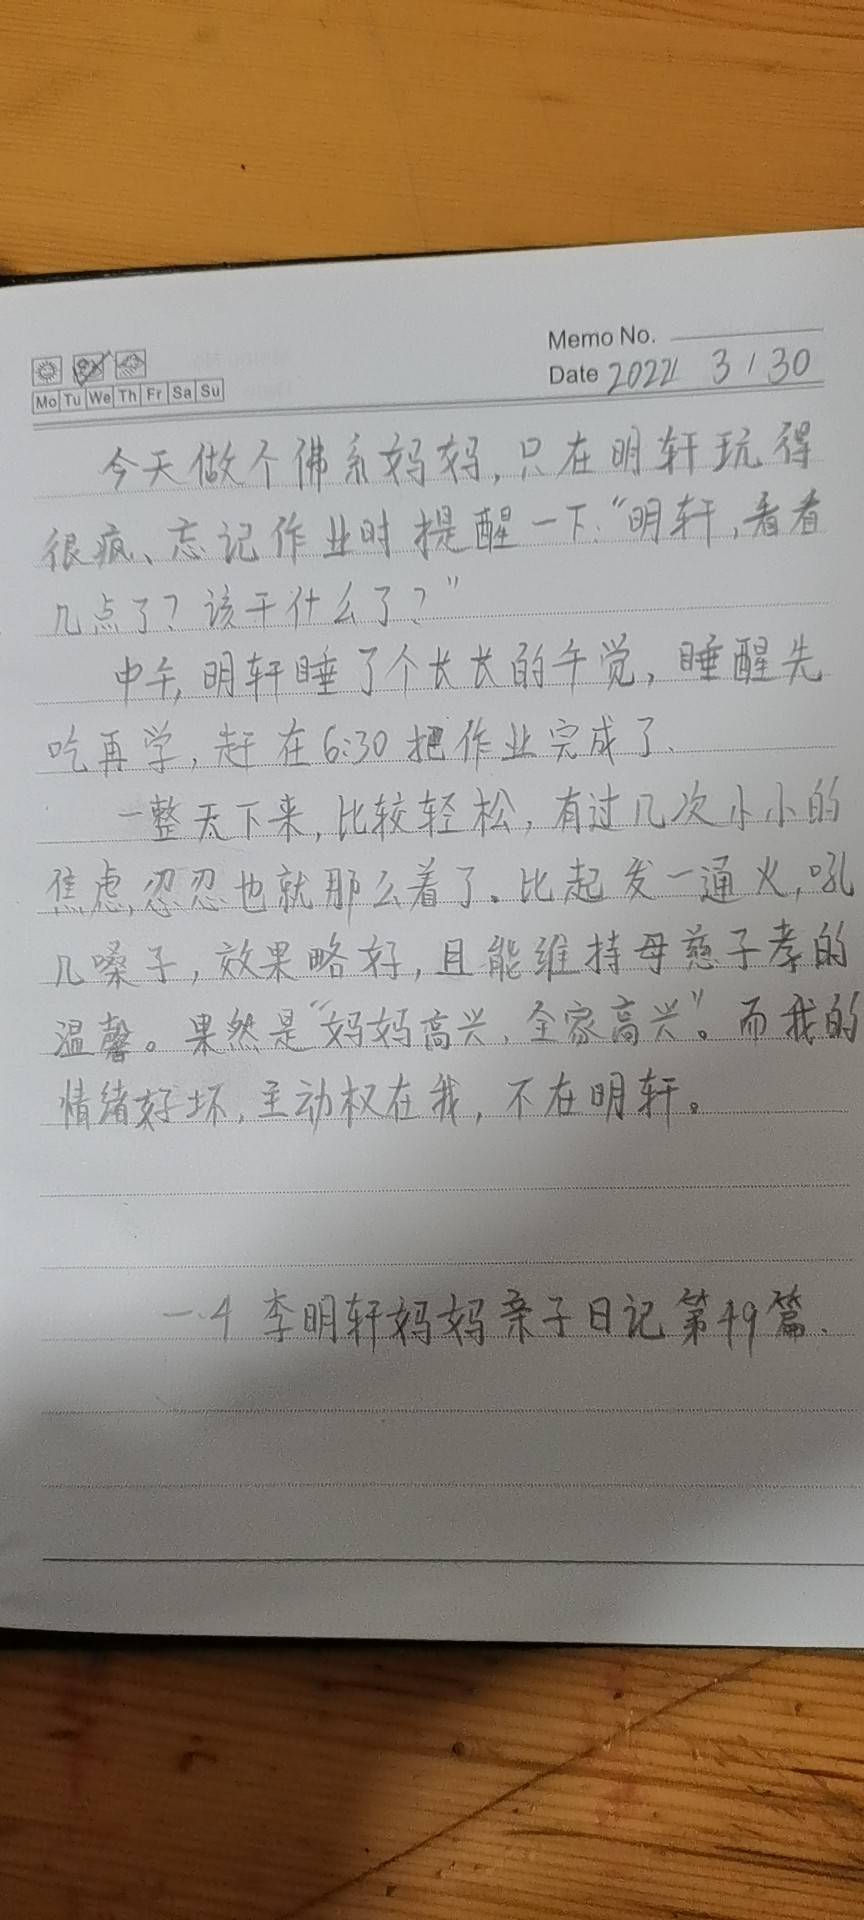 Memo No.
Mo Tu We Th Fr Sa Su
Date 2022/ 3 / 30
今天做个佛系妈妈,只在明轩玩得
很疯、忘记作业时提醒一下:“明轩,看看
几点了?该干什么了?”
中午,明轩睡了个长长的午觉,睡醒先
吃再学,赶在6:30把作业完成了.
一整天下来,比较轻松,有过几次小小的
焦虑,忍忍也就那么着了。比起发一通火,吼
几嗓子,效果略好,且能维持母慈子孝的
温馨。果然是“妈妈高兴,全家高兴”。而我的
情绪好坏,主动权在我,不在明轩。
一.4 李明轩妈妈亲子日记第49篇.